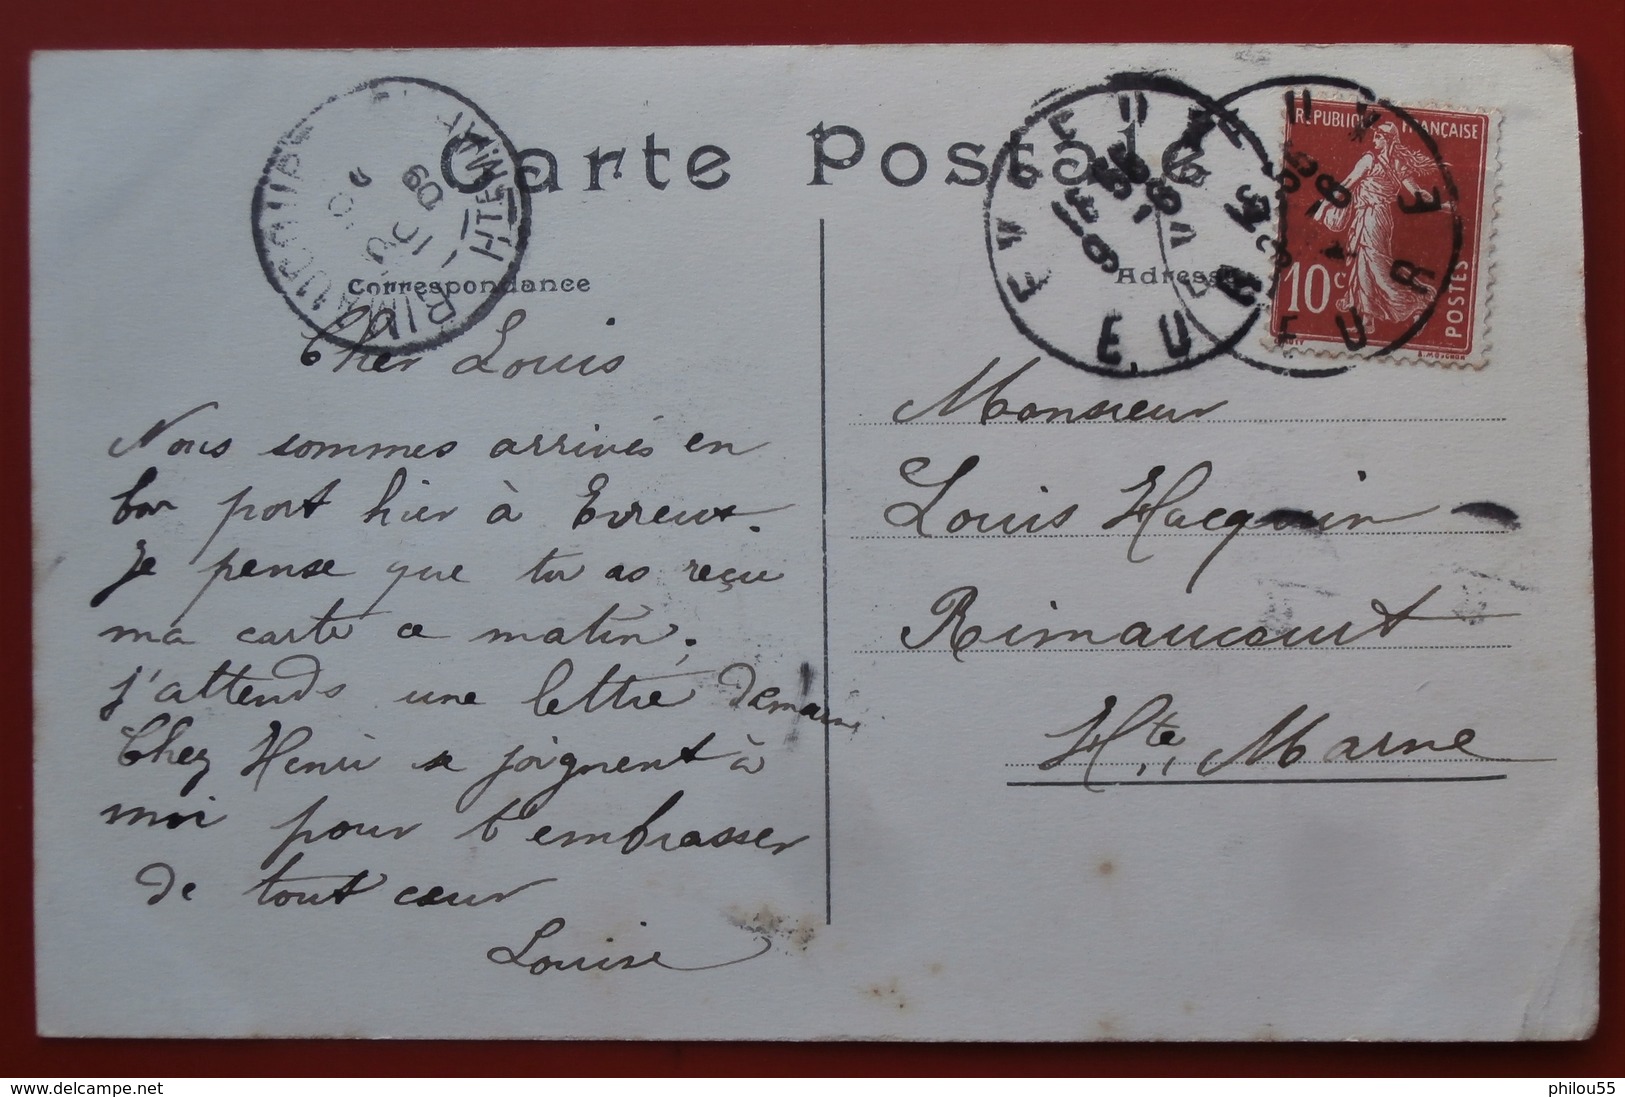 Carte Postale
Correspondance
Adresse
RIMAUCOURT
HTE MARNE
EVREUX
EURE
REPUBLIQUE FRANÇAISE
10 c
POSTES
Cher Louis
Nous sommes arrivés en
bon port hier à Evreux.
Je pense que tu as reçu
ma carte ce matin,
j'attends une lettre demain,
Chez Henri se joignent à
moi pour t'embrasser
de tout cœur
Louise
Monsieur
Louis Hacquin
Rimaucourt
Hte Marne
http://www.delcampe.net
philou55